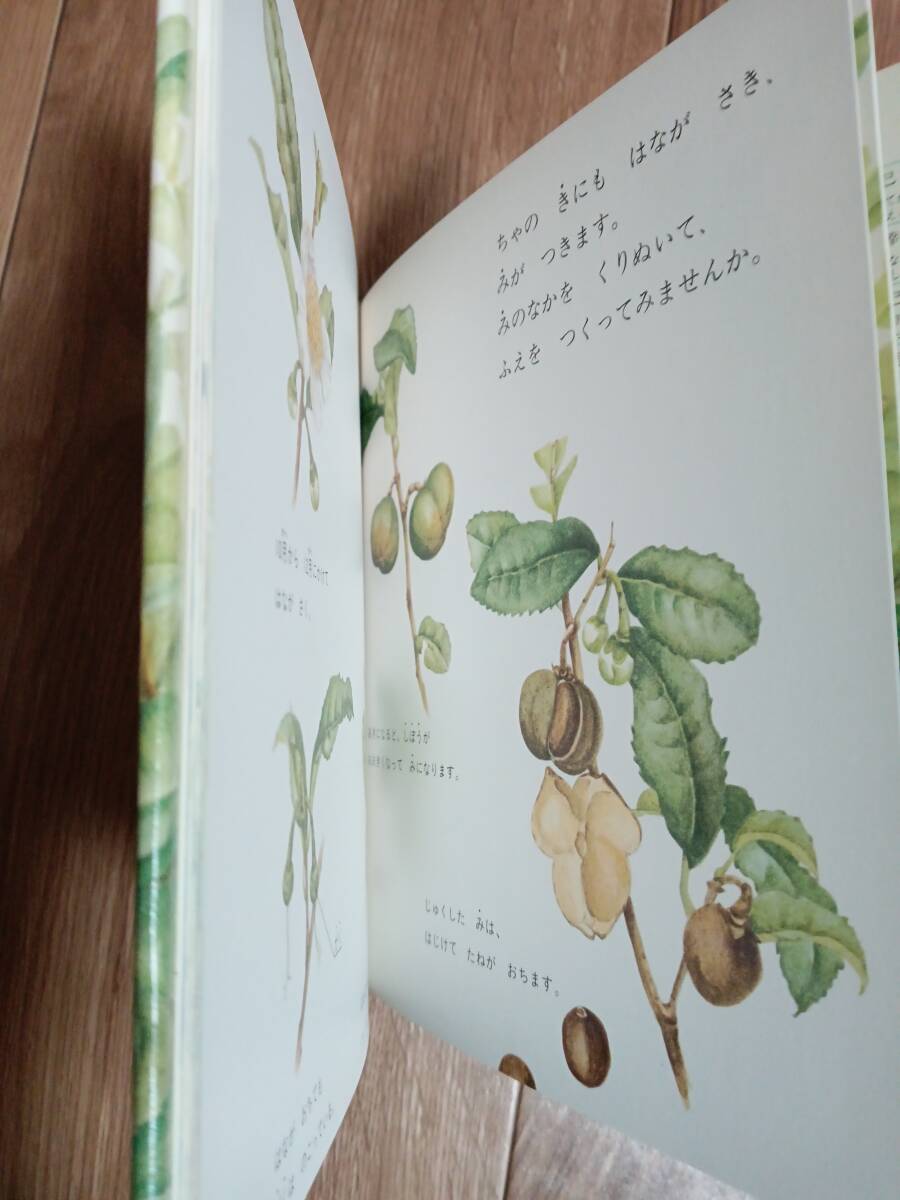 ちゃの きにも はなが さき、
みが つきます。
みのなかを くりぬいて、
ふえを つくってみませんか。
あきになると、しぼうが
おおきくなって みになります。
じゅくした みは、
はじけて たねが おちます。
にかけて
はなが さく。
はなが おちても
のこっている